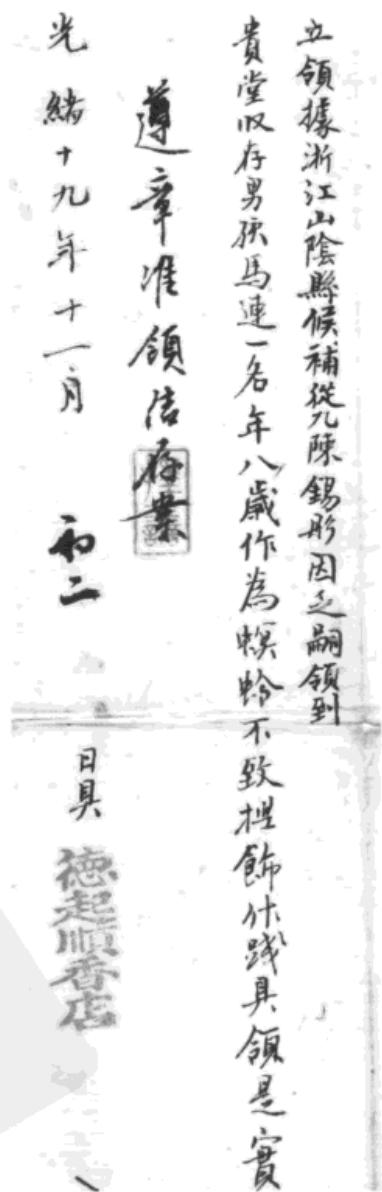 立領據浙江山陰縣候補從九陳錫彤因乏嗣領到
貴堂收存男孩馬連一名年八歲作為螟蛉不致捏飾作踐具領是實
遵章准領結存案
光緒十九年十一月 初二 日具 德起順香店